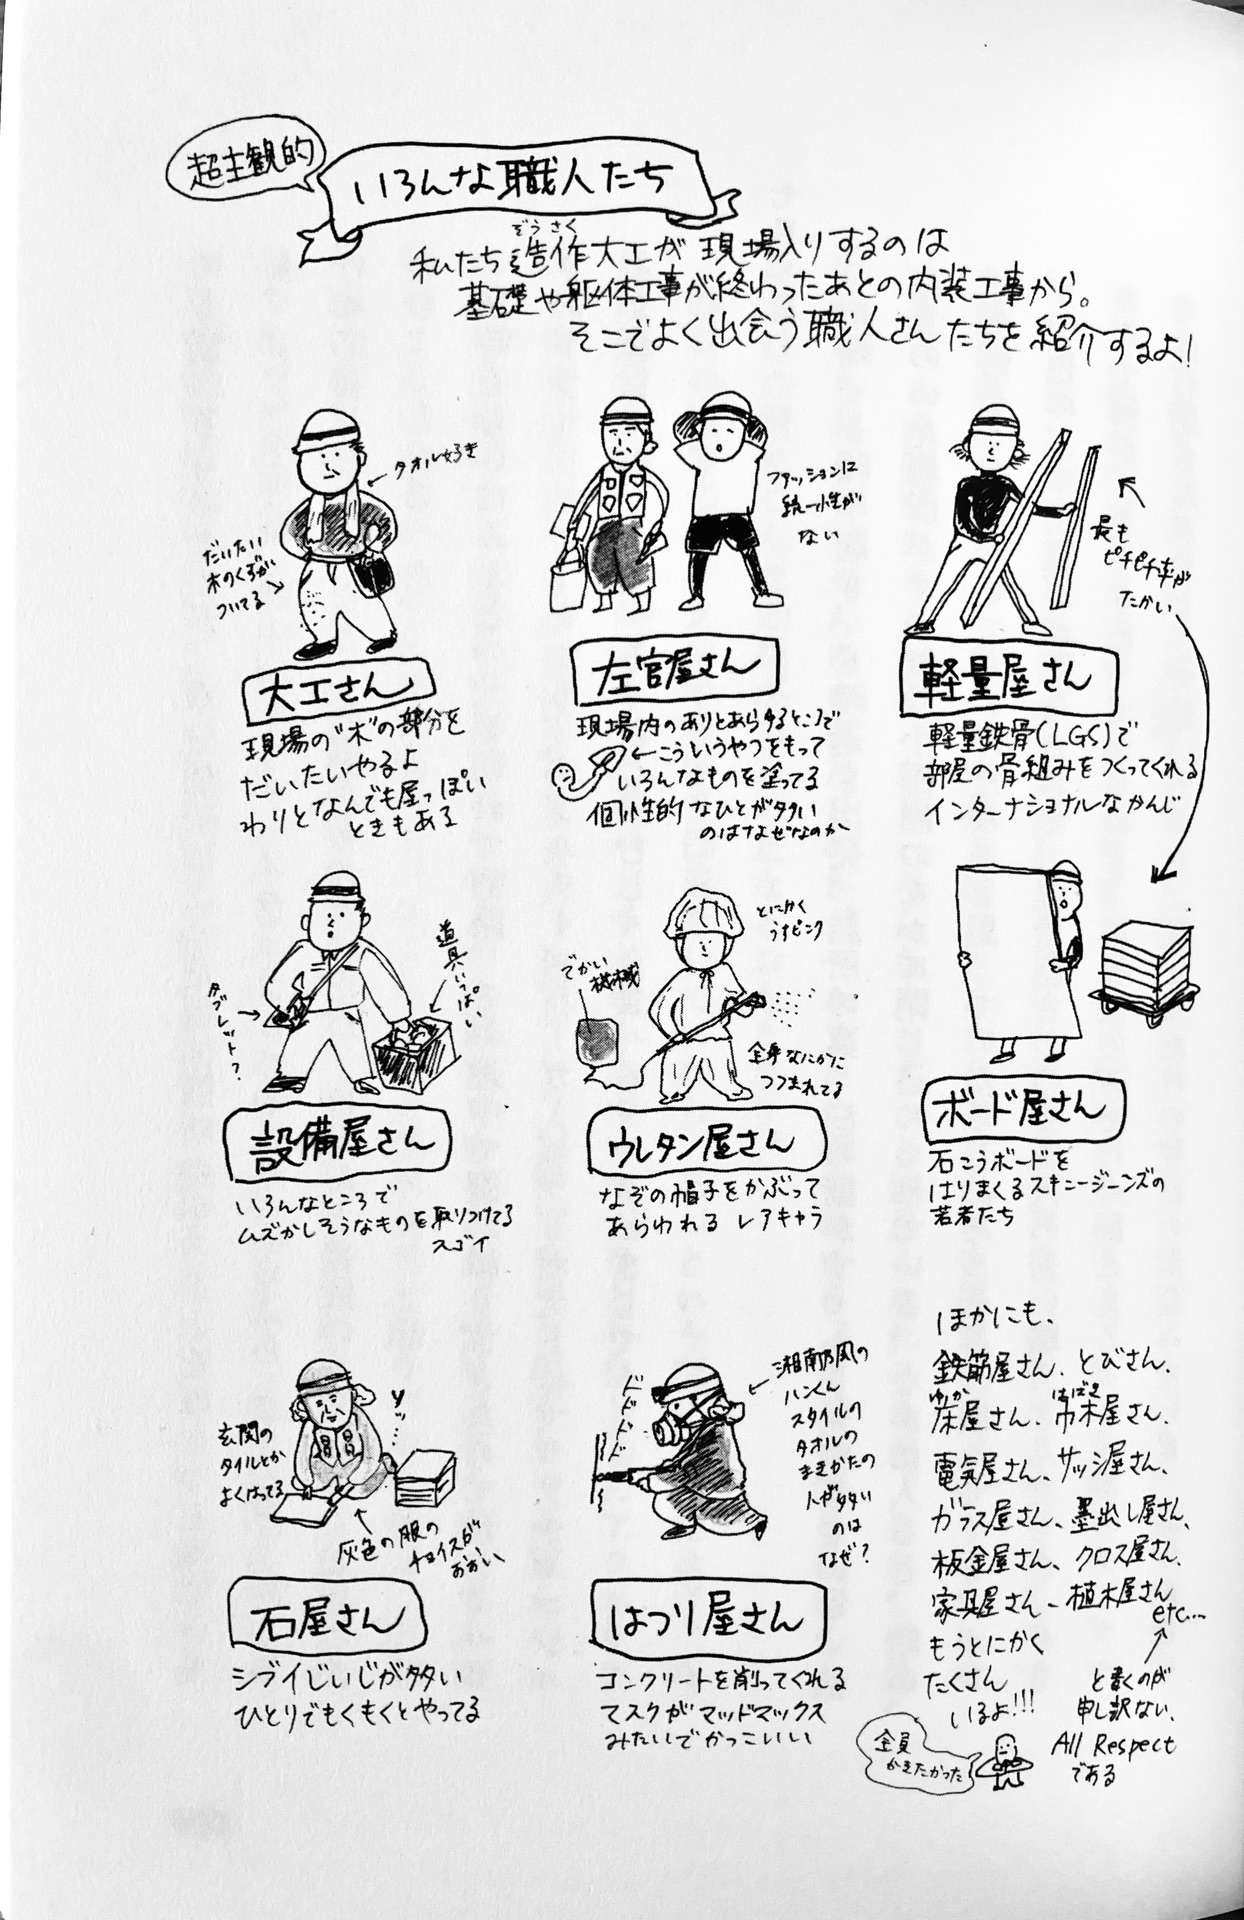 超主観的
いろんな職人たち
ぞうさく
私たち造作大工が現場入りするのは
基礎や躯体工事が終わったあとの内装工事から。
そこでよく出会う職人さんたちを紹介するよ!
タオル好き
だいたい
木のくずが
ついてる
大工さん
現場の"木"の部分を
だいたいやるよ
わりとなんでも屋っぽい
ときもある
ファッションに
統一性が
ない
左官屋さん
現場内のありとあらゆるところで
←こういうやつをもって
いろんなものを塗ってる
個性的なひとが多い
のはなぜなのか
最も
ピチピチ率が
たかい
軽量屋さん
軽量鉄骨(LGS)で
部屋の骨組みをつくってくれる
インターナショナルなかんじ
タブレット?
道具いっぱい
設備屋さん
いろんなところで
ムズかしそうなものを取りつけてる
スゴイ
とにかく
うすピンク
でかい
機械
全身なにかに
つつまれてる
ウレタン屋さん
なぞの帽子をかぶって
あらわれる レアキャラ
ボード屋さん
石こうボードを
はりまくるスキニージーンズの
若者たち
玄関の
タイルとか
よくはってる
ソッ…
灰色の服の
チョイスが
おおい
石屋さん
シブイじいじが多い
ひとりでもくもくとやってる
ドドドドド
湘南乃風の
ハンくん
スタイルの
タオルの
まきかたの
人が多い
のは
なぜ?
はつり屋さん
コンクリートを削ってくれる
マスクがマッドマックス
みたいでかっこいい
ほかにも、
鉄筋屋さん、とびさん、
ゆか はばき
床屋さん、巾木屋さん、
電気屋さん、サッシ屋さん、
ガラス屋さん、墨出し屋さん、
板金屋さん、クロス屋さん、
家具屋さん、植木屋さん
etc...
もうとにかく
たくさん
いるよ!!!
と書くのが
申し訳ない、
All Respect
である
全員
かきたかった